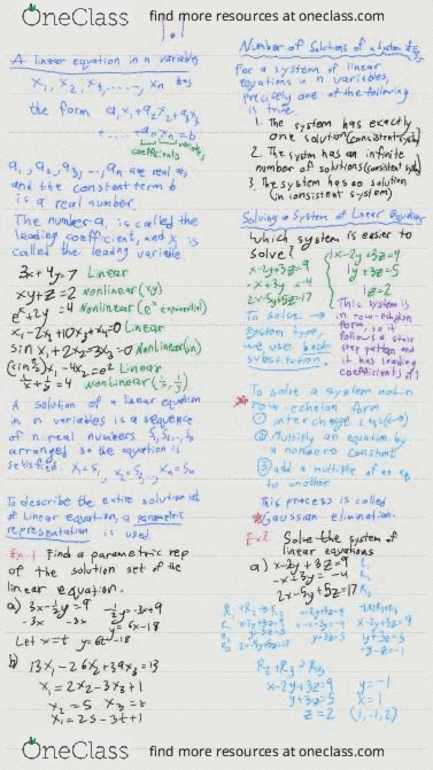 OneClass
find more resources at oneclass.com
1.1
A linear equation in n variables
x₁, x₂, x₃, ....., xₙ has
the form a₁x₁+a₂x₂+a₃x₃
+.....+aₙxₙ=b
coefficients variables
a₁, a₂, a₃, ..., aₙ are real #s
and the constant term b
is a real number.
The number a₁ is called the
leading coefficient, and x₁ is
called the leading variable.
3x+4y=7 Linear
xy+z=2 Nonlinear (xy)
eˣ+2y=4 Nonlinear (eˣ exponential)
x₁-2x₂+10x₃+x₄=0 Linear
sin x₁+2x₂-3x₃=0 Nonlinear (sin)
x₁-4x₂=e² Linear
1/x+1/y=4 Nonlinear (1/x, 1/y)
A solution of a linear equation
in n variables is a sequence
of n real numbers s₁, s₂, ..., sₙ
arranged so the equation is
satisfied. x₁=s₁, x₂=s₂, ..., xₙ=sₙ
To describe the entire solution set
of linear equation, a parametric
representation is used.
Ex.1 Find a parametric rep
of the solution set of the
linear equation.
a) 3x-½y=9 -½y=-3x+9
-3x -3x y=6x-18
Let x=t y=6t-18
b) 13x₁-26x₂+39x₃=13
x₁=2x₂-3x₃+1
x₂=s x₃=t
x₁=2s-3t+1
Number of Solutions of a System of
For a system of linear
equations in n variables,
precisely one of the following
is true.
1. The system has exactly
one solution (consistent syst)
2. The system has an infinite
number of solutions (consistent syst)
3. The system has no solution
(inconsistent system)
Solving a System of Linear Equations
Which system is easier to
solve?
x-2y+3z=9
-x+3y=-4
2x-5y+5z=17
x-2y+3z=9
y+3z=5
z=2
To solve →
system type,
we use back
substitution.
This system is
in row-echelon
form, so it
follows a stair
step pattern and
it has leading
coefficients of 1
To solve a system not in
row-echelon form
① interchange 2 eqs
② Multiply an equation by
a nonzero constant
③ add a multiple of an eq.
to another
This process is called
Gaussian elimination.
Ex2 Solve the system of
linear equations
a) x-2y+3z=9 R₁
-x+3y=-4 R₂
2x-5y+5z=17 R₃
R₁+R₂→R₂
x-2y+3z=9
y+3z=5
2x-5y+5z=17
x-2y+3z=9
y+3z=5
-y-z=-1
R₂+R₃→R₃
x-2y+3z=9 y=-1
y+3z=5 x=1
z=2 (1,-1,2)
OneClass
find more resources at oneclass.com